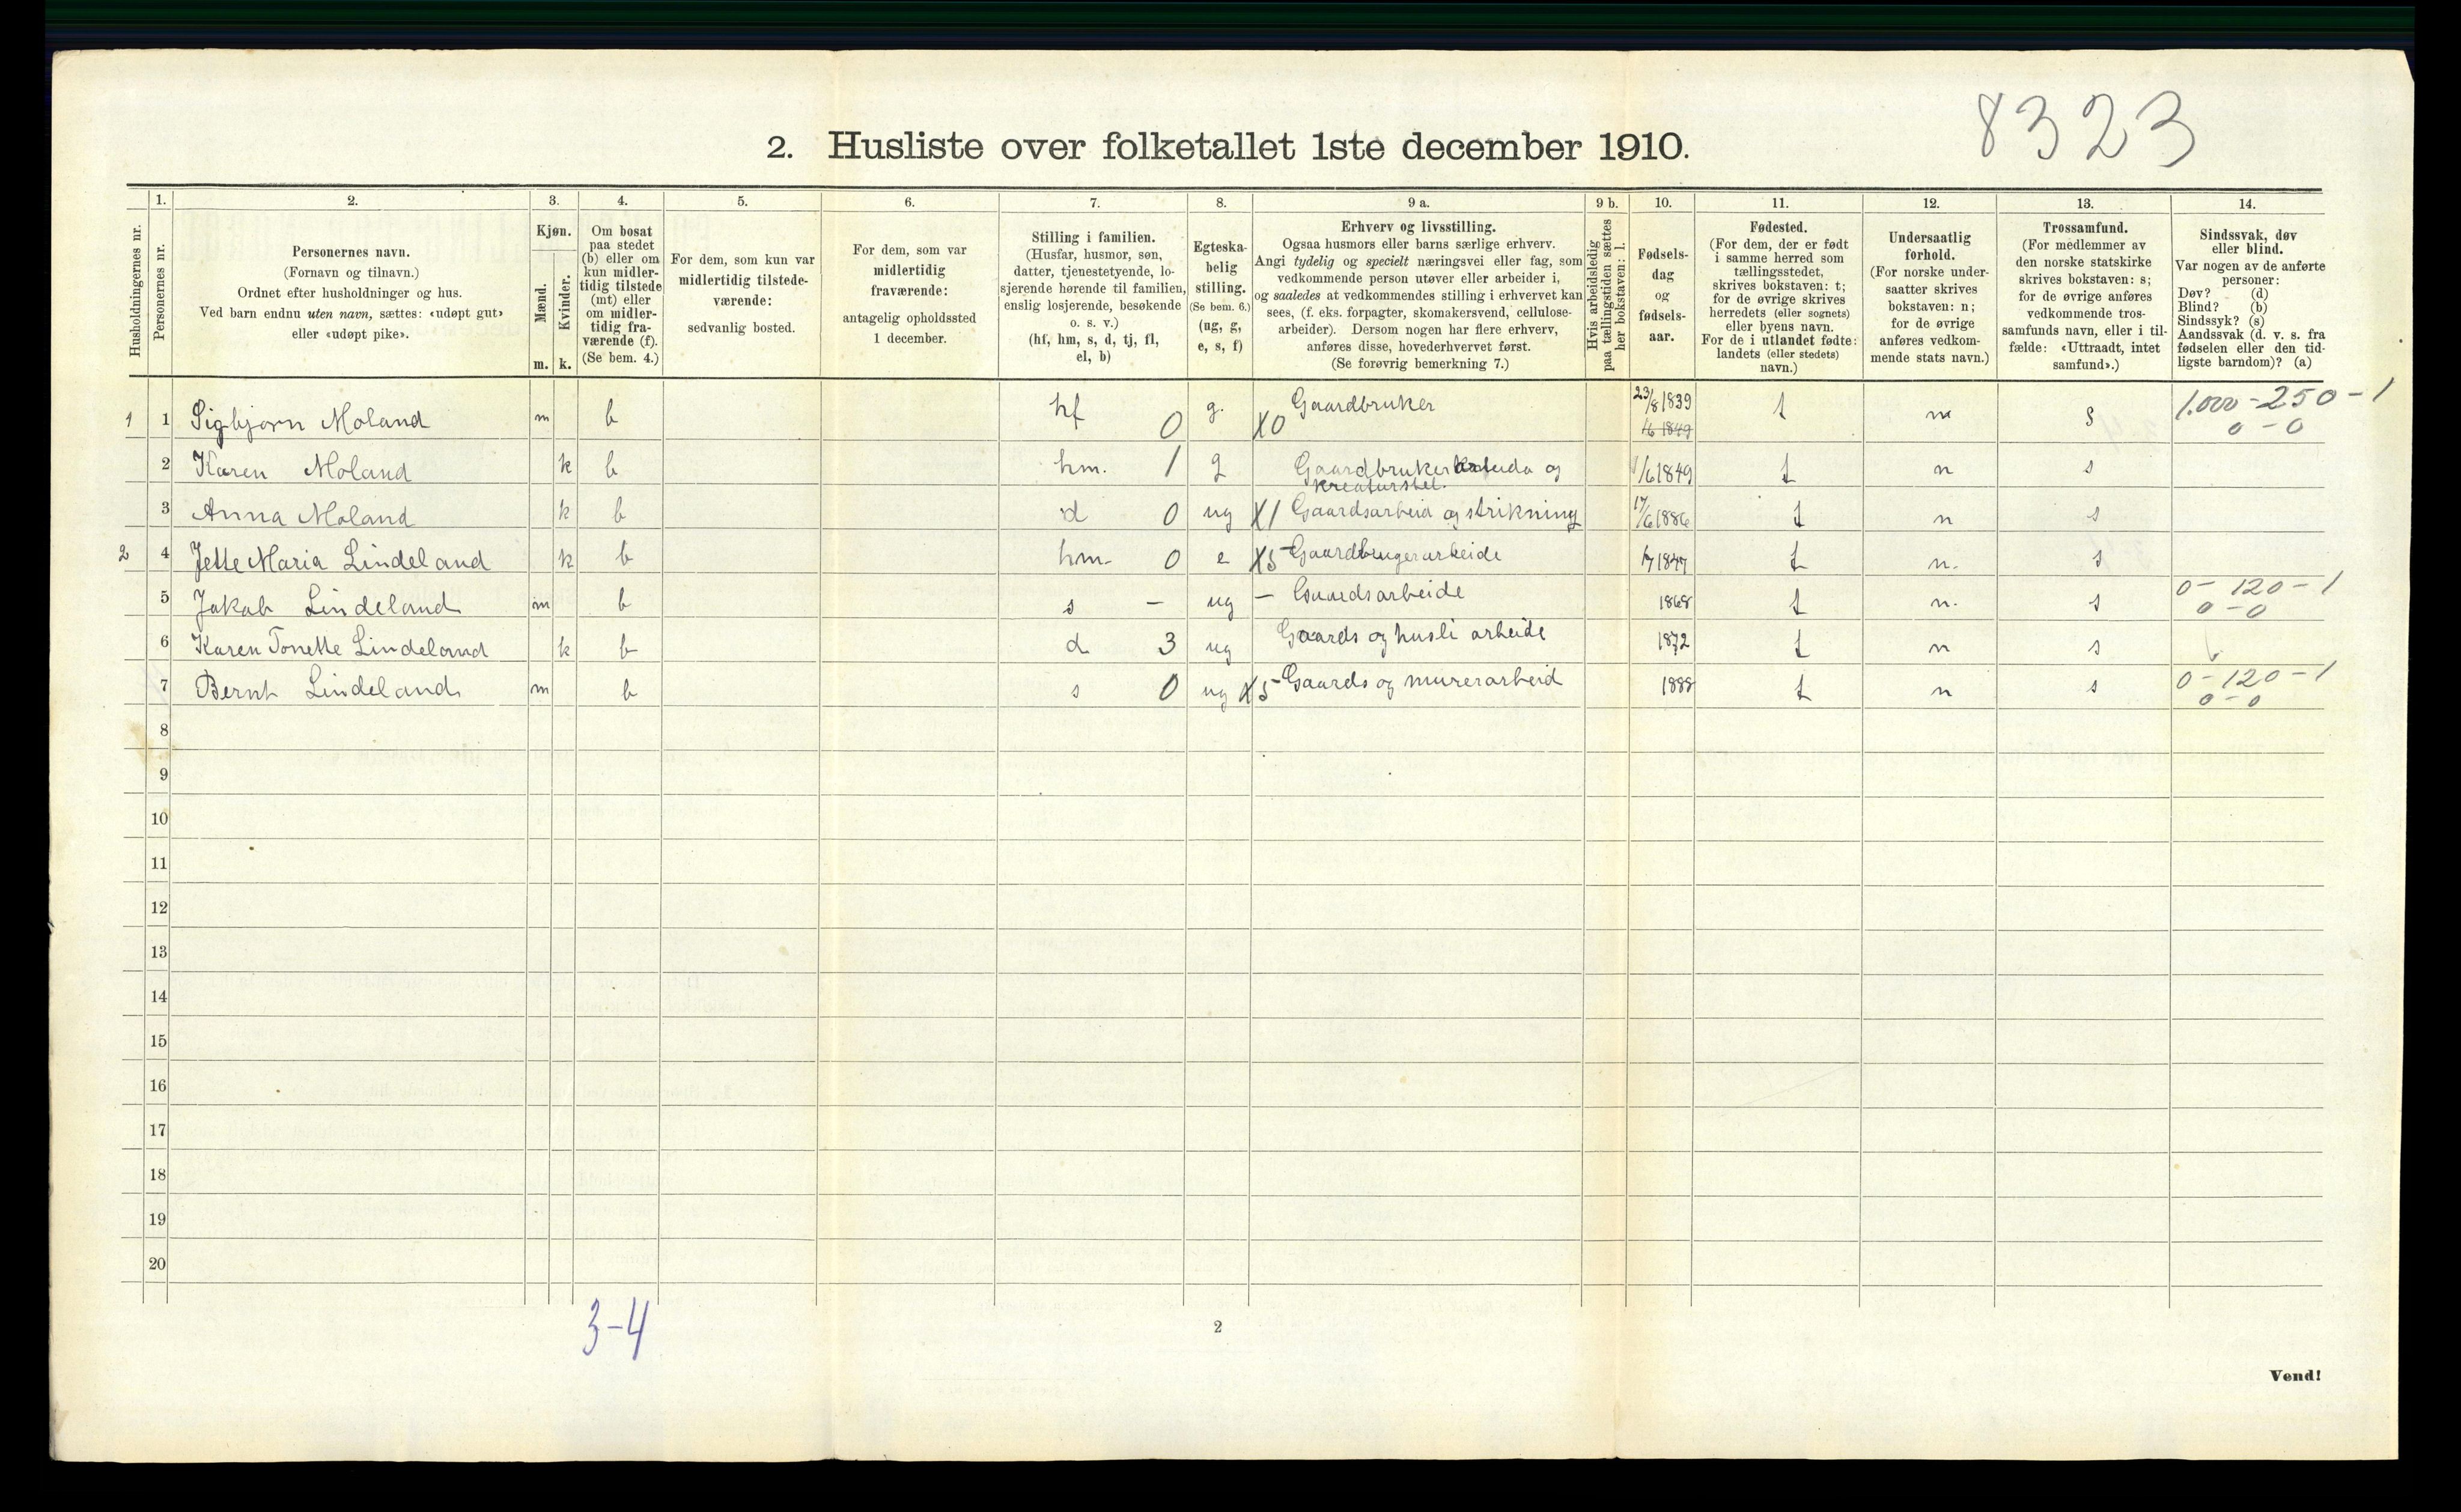 8323
2. Husliste over folketallet 1ste december 1910.
Husholdningernes nr.
1.
Personernes nr.
2.
Personernes navn.
(Fornavn og tilnavn.)
Ordnet efter husholdninger og hus.
Ved barn endnu uten navn, sættes: «udøpt gut»
eller «udøpt pike».
3.
Kjøn.
Mænd.
Kvinder.
m. k.
4.
Om bosat
paa stedet
(b) eller om
kun midler-
tidig tilstede
(mt) eller
om midler-
tidig fra-
værende (f).
(Se bem. 4.)
5.
For dem, som kun var
midlertidig tilstede-
værende:
sedvanlig bosted.
6.
For dem, som var
midlertidig
fraværende:
antagelig opholdssted
1 december.
7.
Stilling i familien.
(Husfar, husmor, søn,
datter, tjenestetyende, lo-
sjerende hørende til familien,
enslig losjerende, besøkende
o. s. v.)
(hf, hm, s, d, tj, fl,
el, b)
8.
Egteska-
belig
stilling.
(Se bem. 6.)
(ug, g,
e, s, f)
9 a.
Erhverv og livsstilling.
Ogsaa husmors eller barns særlige erhverv.
Angi tydelig og specielt næringsvei eller fag, som
vedkommende person utøver eller arbeider i,
og saaledes at vedkommendes stilling i erhvervet kan
sees, (f. eks. forpagter, skomakersvend, cellulose-
arbeider). Dersom nogen har flere erhverv,
anføres disse, hovederhvervet først.
(Se forøvrig bemerkning 7.)
9 b.
Hvis arbeidsledig
paa tællingstiden sættes
her bokstaven: l.
10.
Fødsels-
dag
og
fødsels-
aar.
11.
Fødested.
(For dem, der er født
i samme herred som
tællingsstedet,
skrives bokstaven: t;
for de øvrige skrives
herredets (eller sognets)
eller byens navn.
For de i utlandet fødte:
landets (eller stedets)
navn.)
12.
Undersaatlig
forhold.
(For norske under-
saatter skrives
bokstaven: n;
for de øvrige
anføres vedkom-
mende stats navn.)
13.
Trossamfund.
(For medlemmer av
den norske statskirke
skrives bokstaven: s;
for de øvrige anføres
vedkommende tros-
samfunds navn, eller i til-
fælde: «Uttraadt, intet
samfund».)
14.
Sindssvak, døv
eller blind.
Var nogen av de anførte
personer:
Døv? (d)
Blind? (b)
Sindssyk? (s)
Aandssvak (d. v. s. fra
fødselen eller den tid-
ligste barndom)? (a)
1 1 Sigbjørn Moland m b hf 0 g. X0 Gaardbruker 23/8 1839 t n s 1.000-250-1
1849 0-0
2 Karen Moland k b hm. 1 g Gaardbruker og 1/6 1849 t n s
kreaturstel.
3 Anna Moland k b d 0 ug X1 Gaardsarbeid og strikning 17/6 1886 t n s
2 4 Jette Maria Lindeland k b hm- 0 e X5- Gaardbrugerarbeide 1847 t n. s
5 Jakob Lindeland m b s - ug - Gaardsarbeide 1868 t n. s 0-120-1
0-0
6 Karen Tonette Lindeland k b d 3 ug Gaards og husli arbeide 1872 t n s
7 Bernt Lindeland m b s 0 ug X5- Gaards og murerarbeid 1888 t n s 0-120-1
0-0
8
9
10
11
12
13
14
15
16
17
18
19
20
3-4
2
Vend!